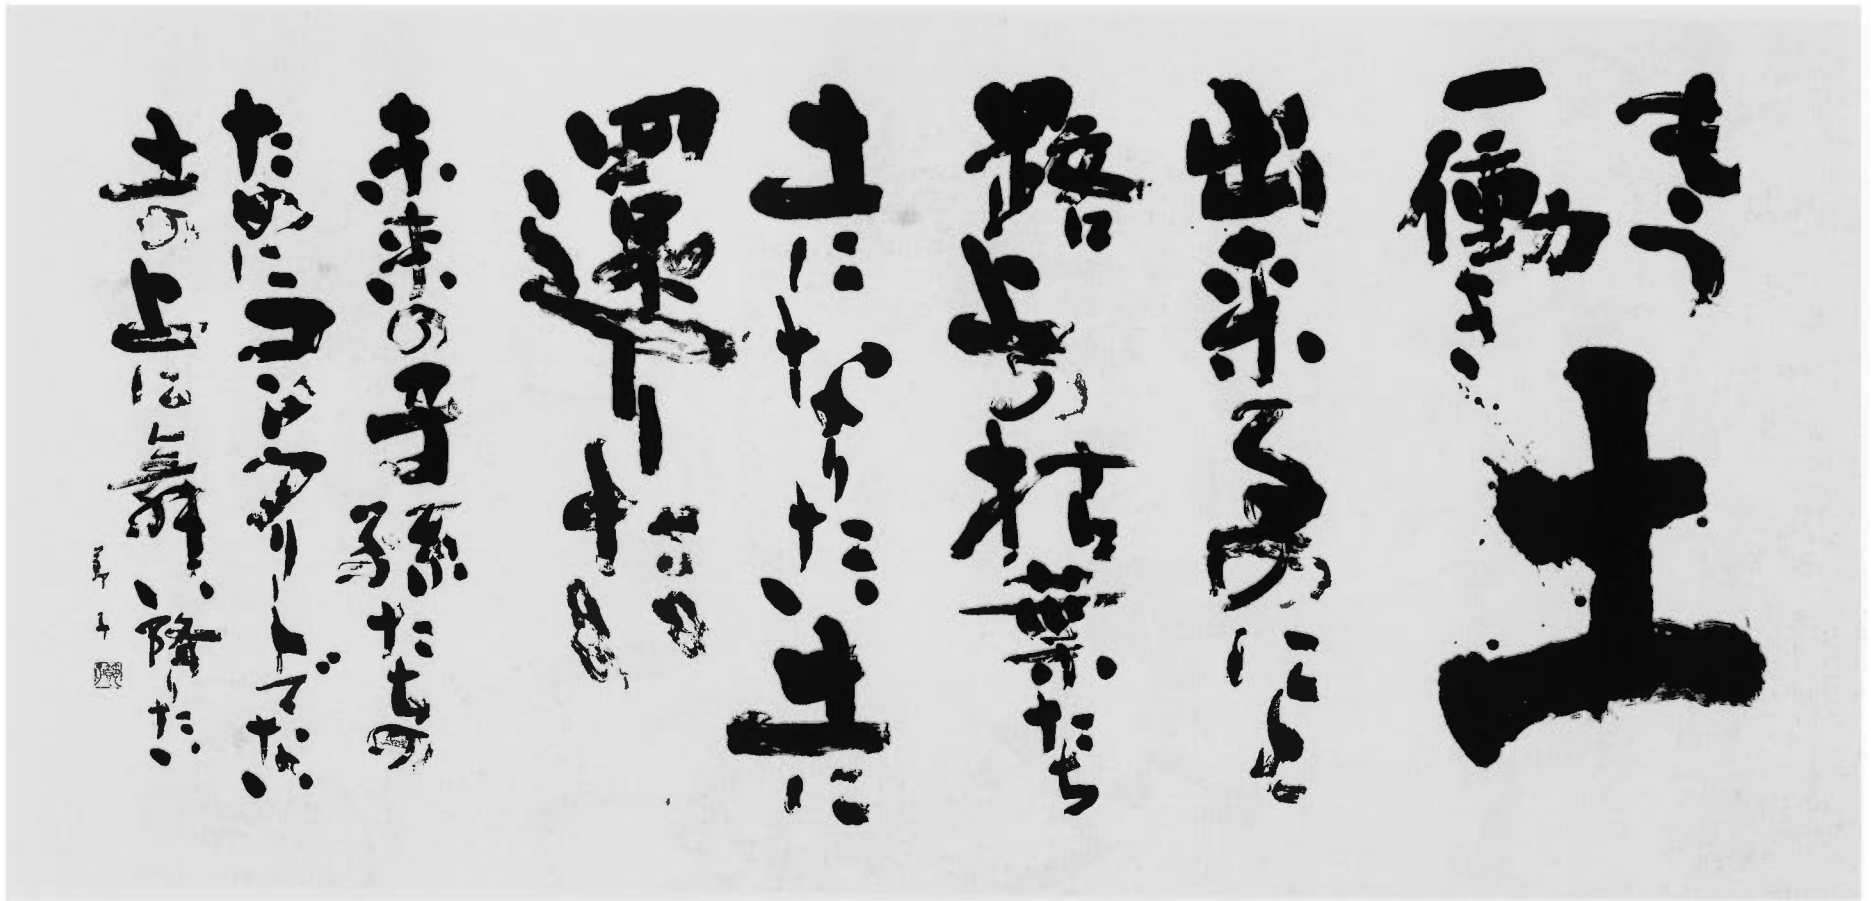 もう
一働き
土
出来るのにと
路上の枯葉たち
土になりたい土に
還りたい
未来の子孫たちの
ためにコンクリートでない
土の上に舞い降りたい